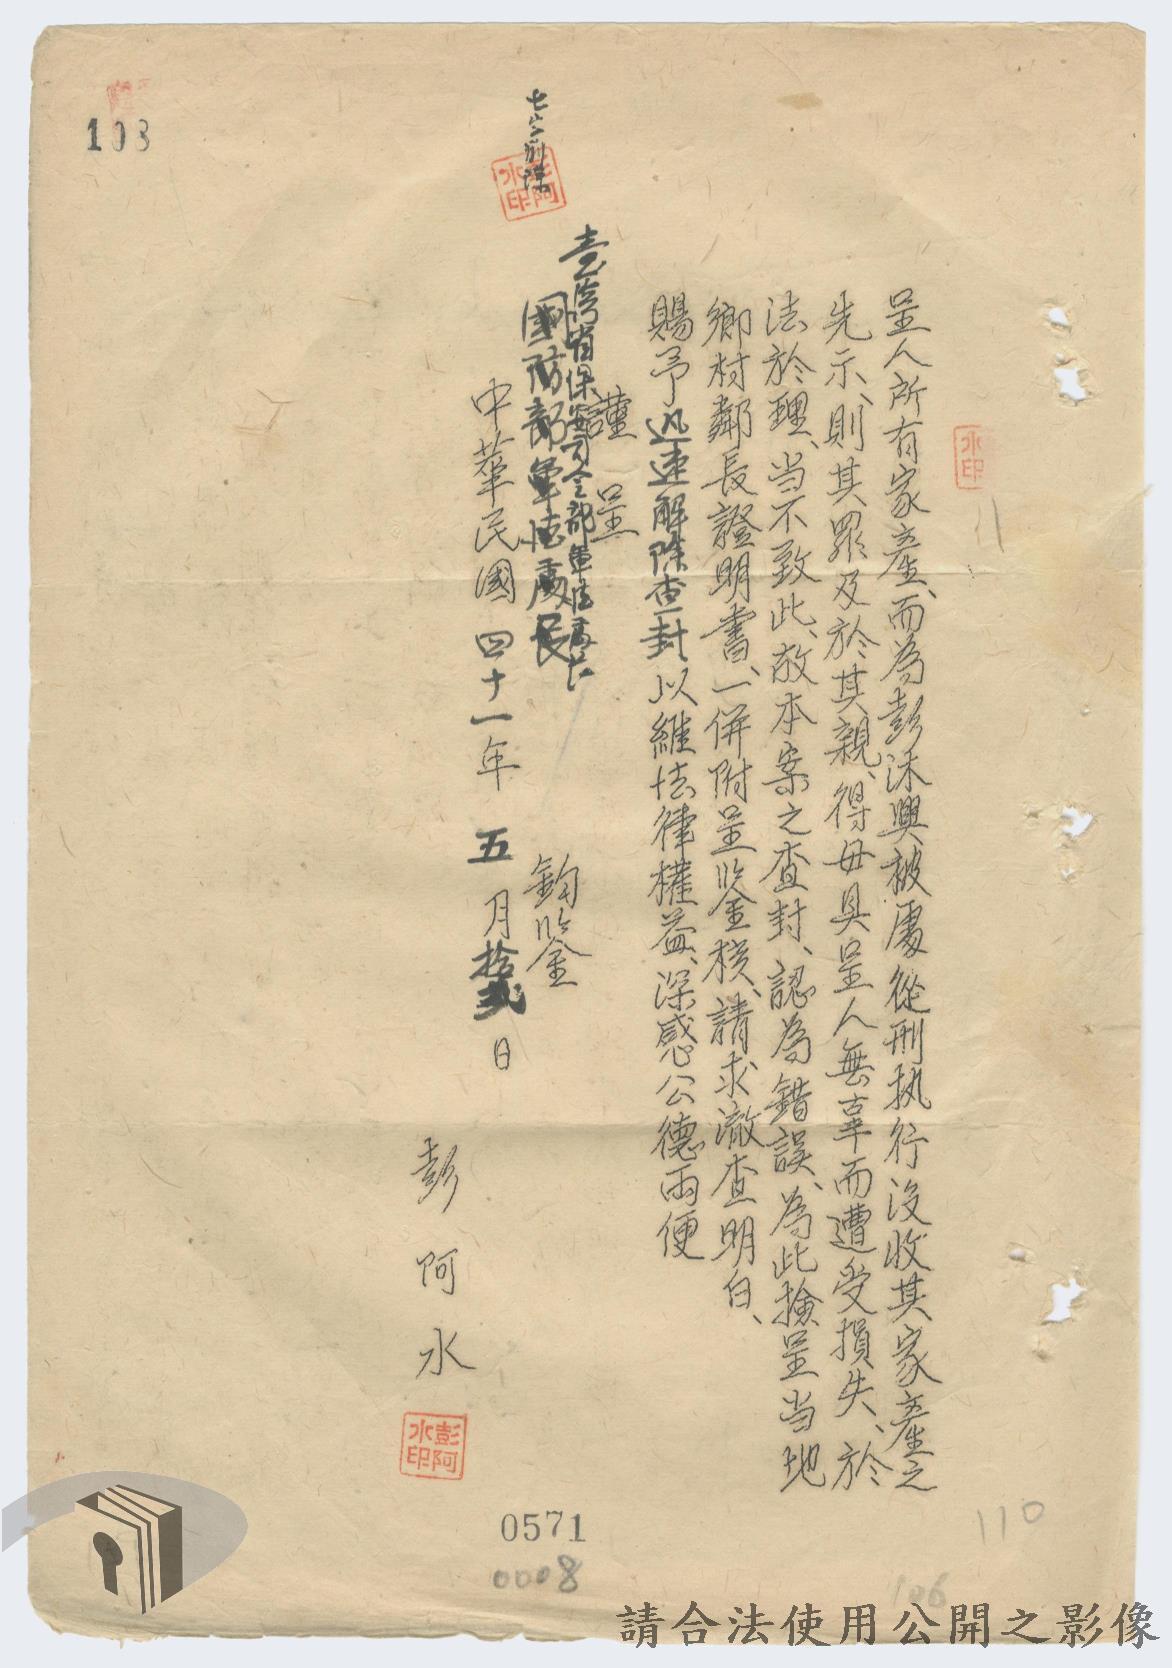 呈人所有家產、而為彭沐興被處從刑执行沒收其家產之
先示、則其罪及於其親、得毋具呈人無辜而遭受損失、於
法於理、当不致此、故本案之查封、認為錯誤、為此撿呈当地
鄉村鄰長證明書、一併附呈鉴核、請求澈查明白、
賜予迅速解除查封以維法律權益、深感公德兩便
謹呈
臺灣省保安司令部軍法處長
國防部軍法處長 鈞鉴
七字刪除
中華民國四十一年五月拾弍日
彭阿水
彭阿水印
水印
103
0571
0008
110
106
請合法使用公開之影像